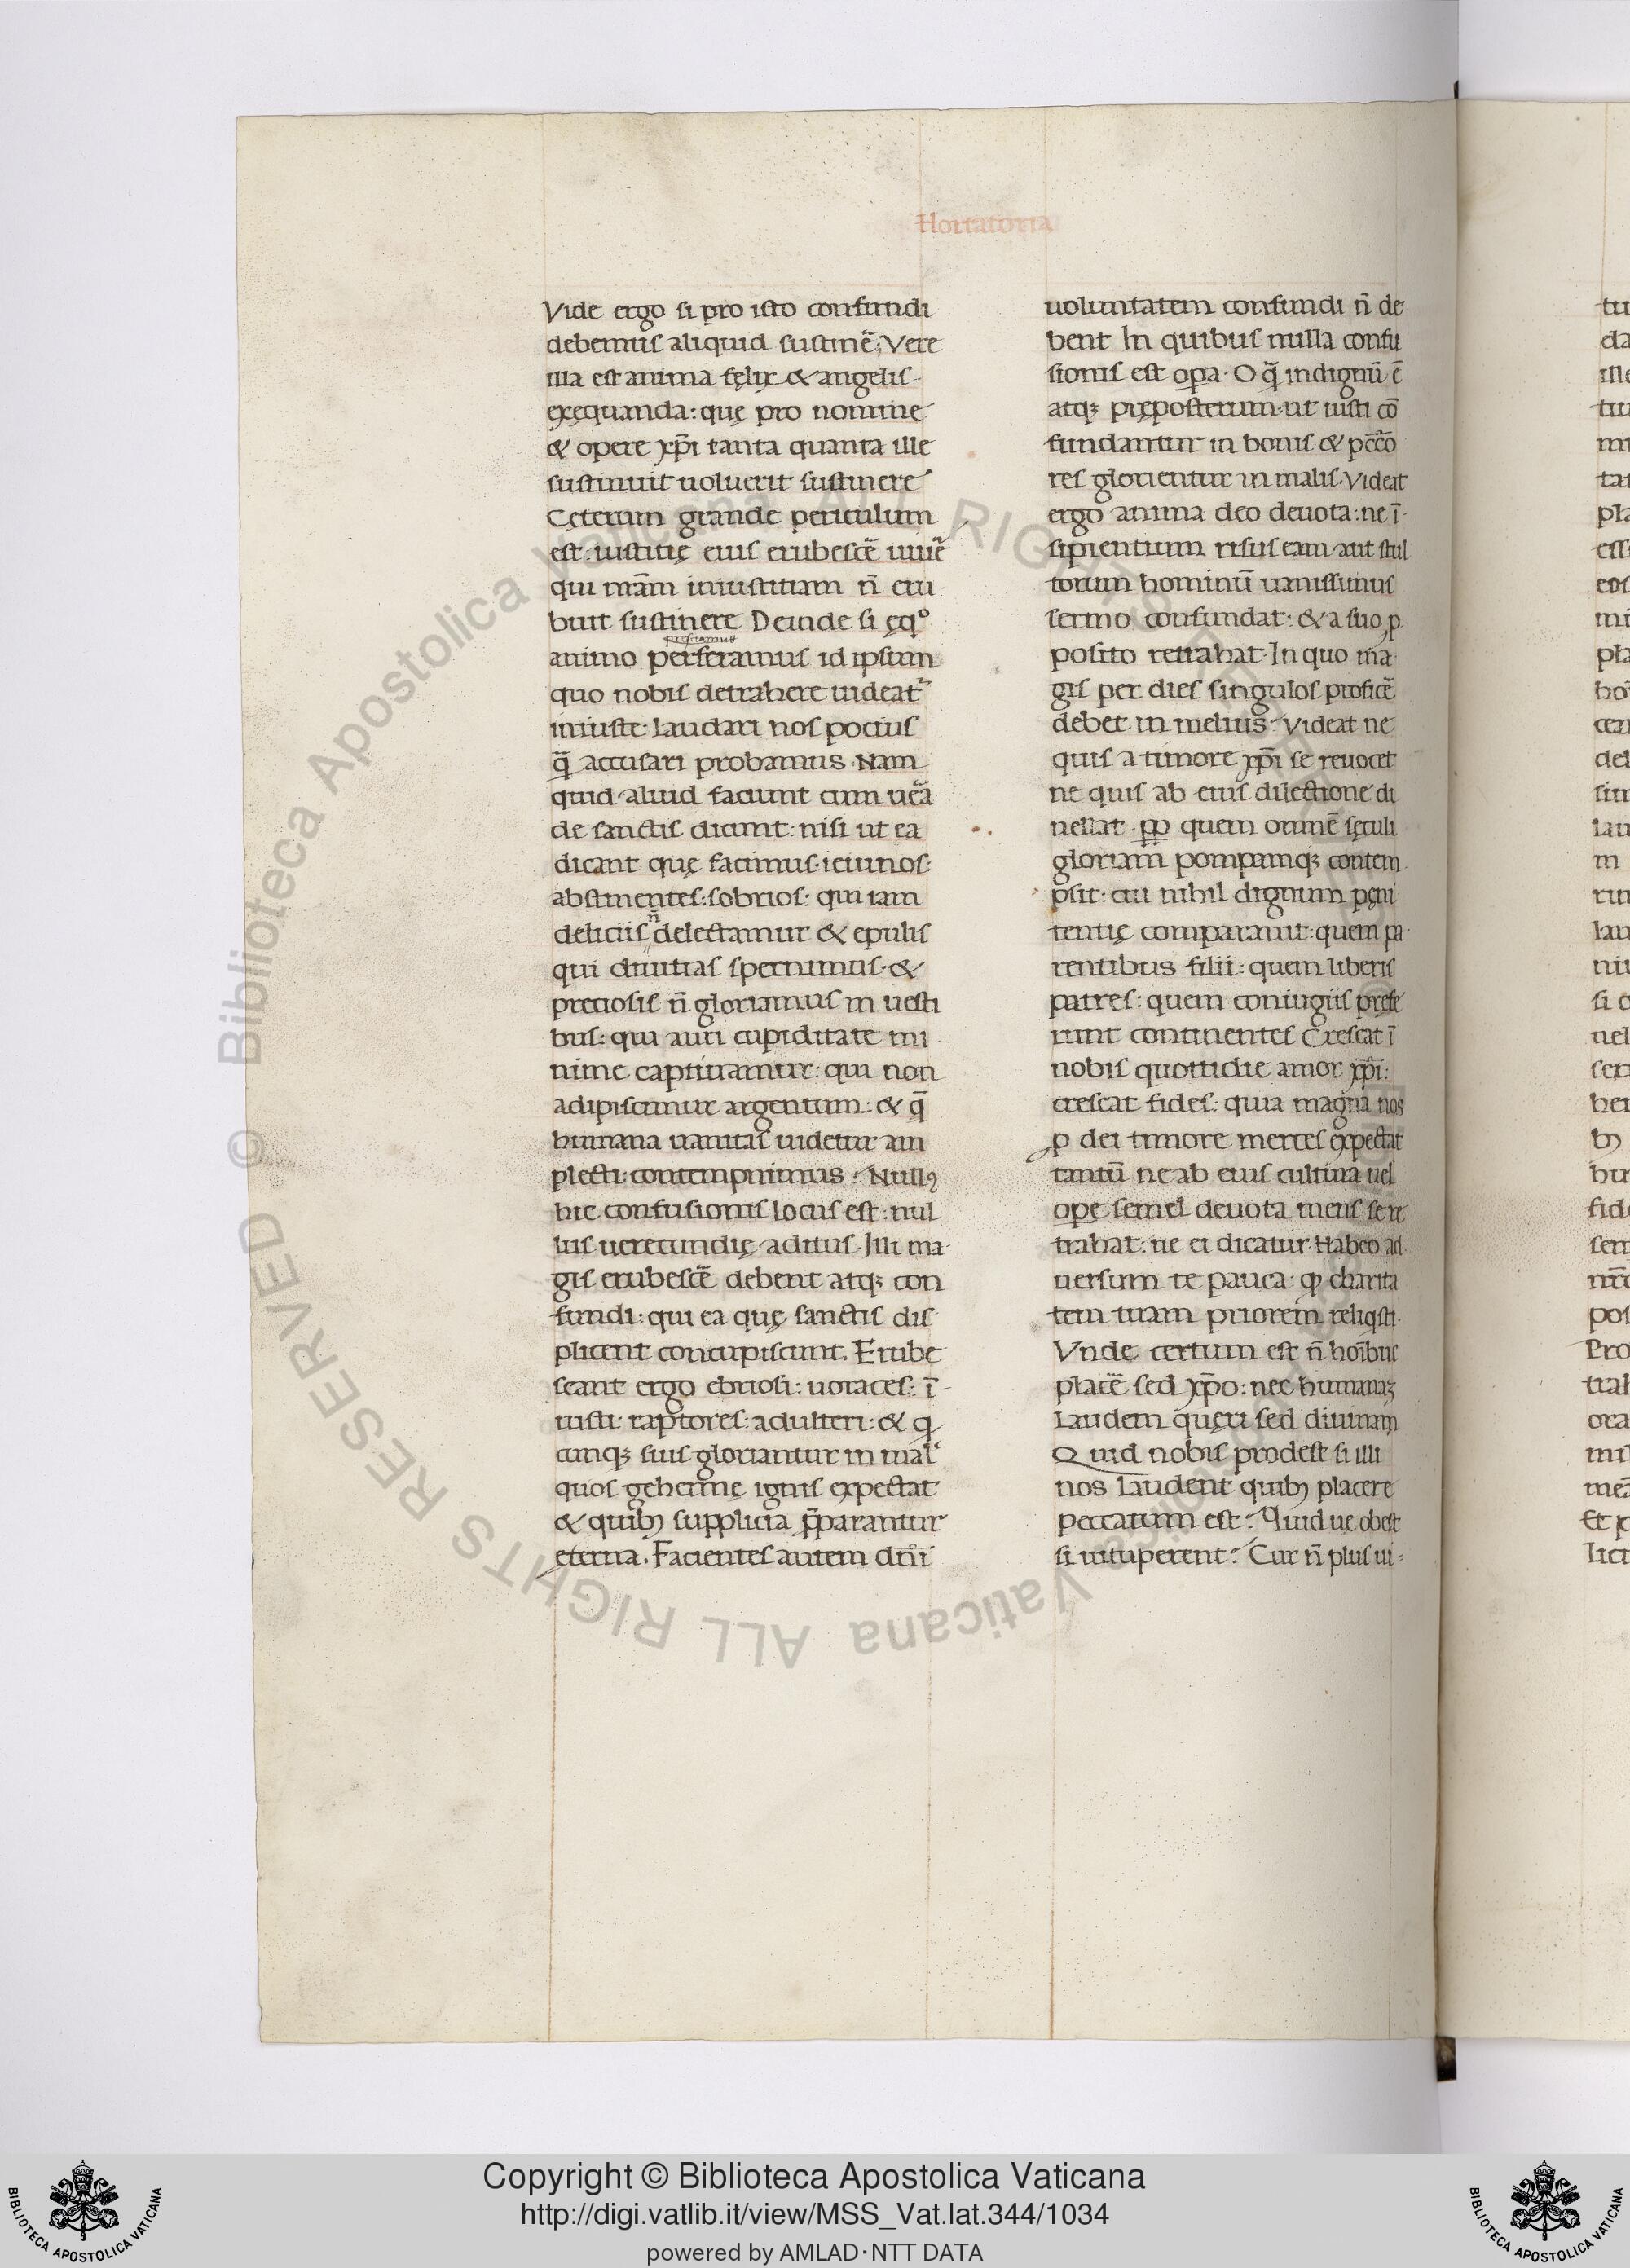 Hortatoria
Vide ergo si pro isto confundi
debemus aliquid sustinẽ; Vere
illa est anima fęlix & angelis
exęquanda: quę pro nomine
& opere xp̃i tanta quanta ille
sustinuit uoluerit sustinere
Cęterum grande periculum
est: iustitię eius erubescẽ uiuẽ
qui nr̃am iniustitiam ñ eru
buit sustinere Deinde si ęqº
presumus
animo perferamus id ipsum
quo nobis detrahere uideat
iniuste: laudari nos pocius
q̃ accusari probamus. Nam
quid aliud faciunt cum uerã
de sanctis dicunt: nisi ut ea
dicant quę facimus. ieiunos:
abstinentes: sobrios: qui iam
deliciis ñ delectamur & epulis
qui diuitias spernimus. &
preciosis ñ gloriamur in uesti
bus: qui auri cupiditate mi
nime captiuamur: qui non
adipiscimur argentum: & q̃
humana uanitas uidetur am
plecti: contempnimus? Nullꝯ
hic confusionis locus est: nul
lus uerecundię aditus. Illi ma
gis erubescẽ debent atqꝫ con
fundi: qui ea quę sanctis dis
plicent concupiscunt. Erube
scant ergo ebriosi: uoraces: ĩ
iusti: raptores: adulteri: & q
cunqꝫ suis gloriantur in mal
quos gehennę ignis expectat
& quibꝫ supplicia p̃parantur
eterna. Facientes autem dñi
uoluntatem confundi ñ de
bent In quibus nulla confu
sionis est opa. O q̃ indignũ ẽ
atqꝫ pręposterum. ut iusti cõ
fundantur in bonis & pcc̃o
res glorientur in malis. Videat
ergo anima deo deuota: ne ĩ
sipientium risus eam aut stul
torum hominũ uanissimus
sermo confundat: & a suo ꝓ
posito retrahat. In quo ma
gis per dies singulos proficẽ
debet in melius. Videat ne
quis a timore xp̃i se reuocet
ne quis ab eius dilectione di
uellat. ꝓp quem omnẽ sęculi
gloriam pompamqꝫ contem
psit: cui nihil dignum pęni
tentię comparauit: quem pa
rentibus filii: quem liberis
patres: quem coniugiis pręfe
runt continentes Crescat ĩ
nobis quottidie amor xp̃i:
crescat fides: quia magna nos
ꝓ dei timore merces expectat
tantũ ne ab eius cultura uel
opę semel deuota mens se re
trahat: ne ei dicatur. Habeo ad
uersum te pauca: ꝙ charita
tem tuam priorem reliqsti.
Vnde certum est ñ hoĩbus
placẽ sed xp̃o: nec humanaꝫ
Laudem quęri sed diuinam
Quid nobis prodest si illi
nos Laudent quibꝫ placere
peccatum est? Quid ue obest
si uituperent? Cur ñ plus ui
Copyright © Biblioteca Apostolica Vaticana
http://digi.vatlib.it/view/MSS_Vat.lat.344/1034
powered by AMLAD·NTT DATA
BIBLIOTECA APOSTOLICA VATICANA
BIBLIOTECA APOSTOLICA VATICANA
© Biblioteca Apostolica Vaticana ALL RIGHTS RESERVED